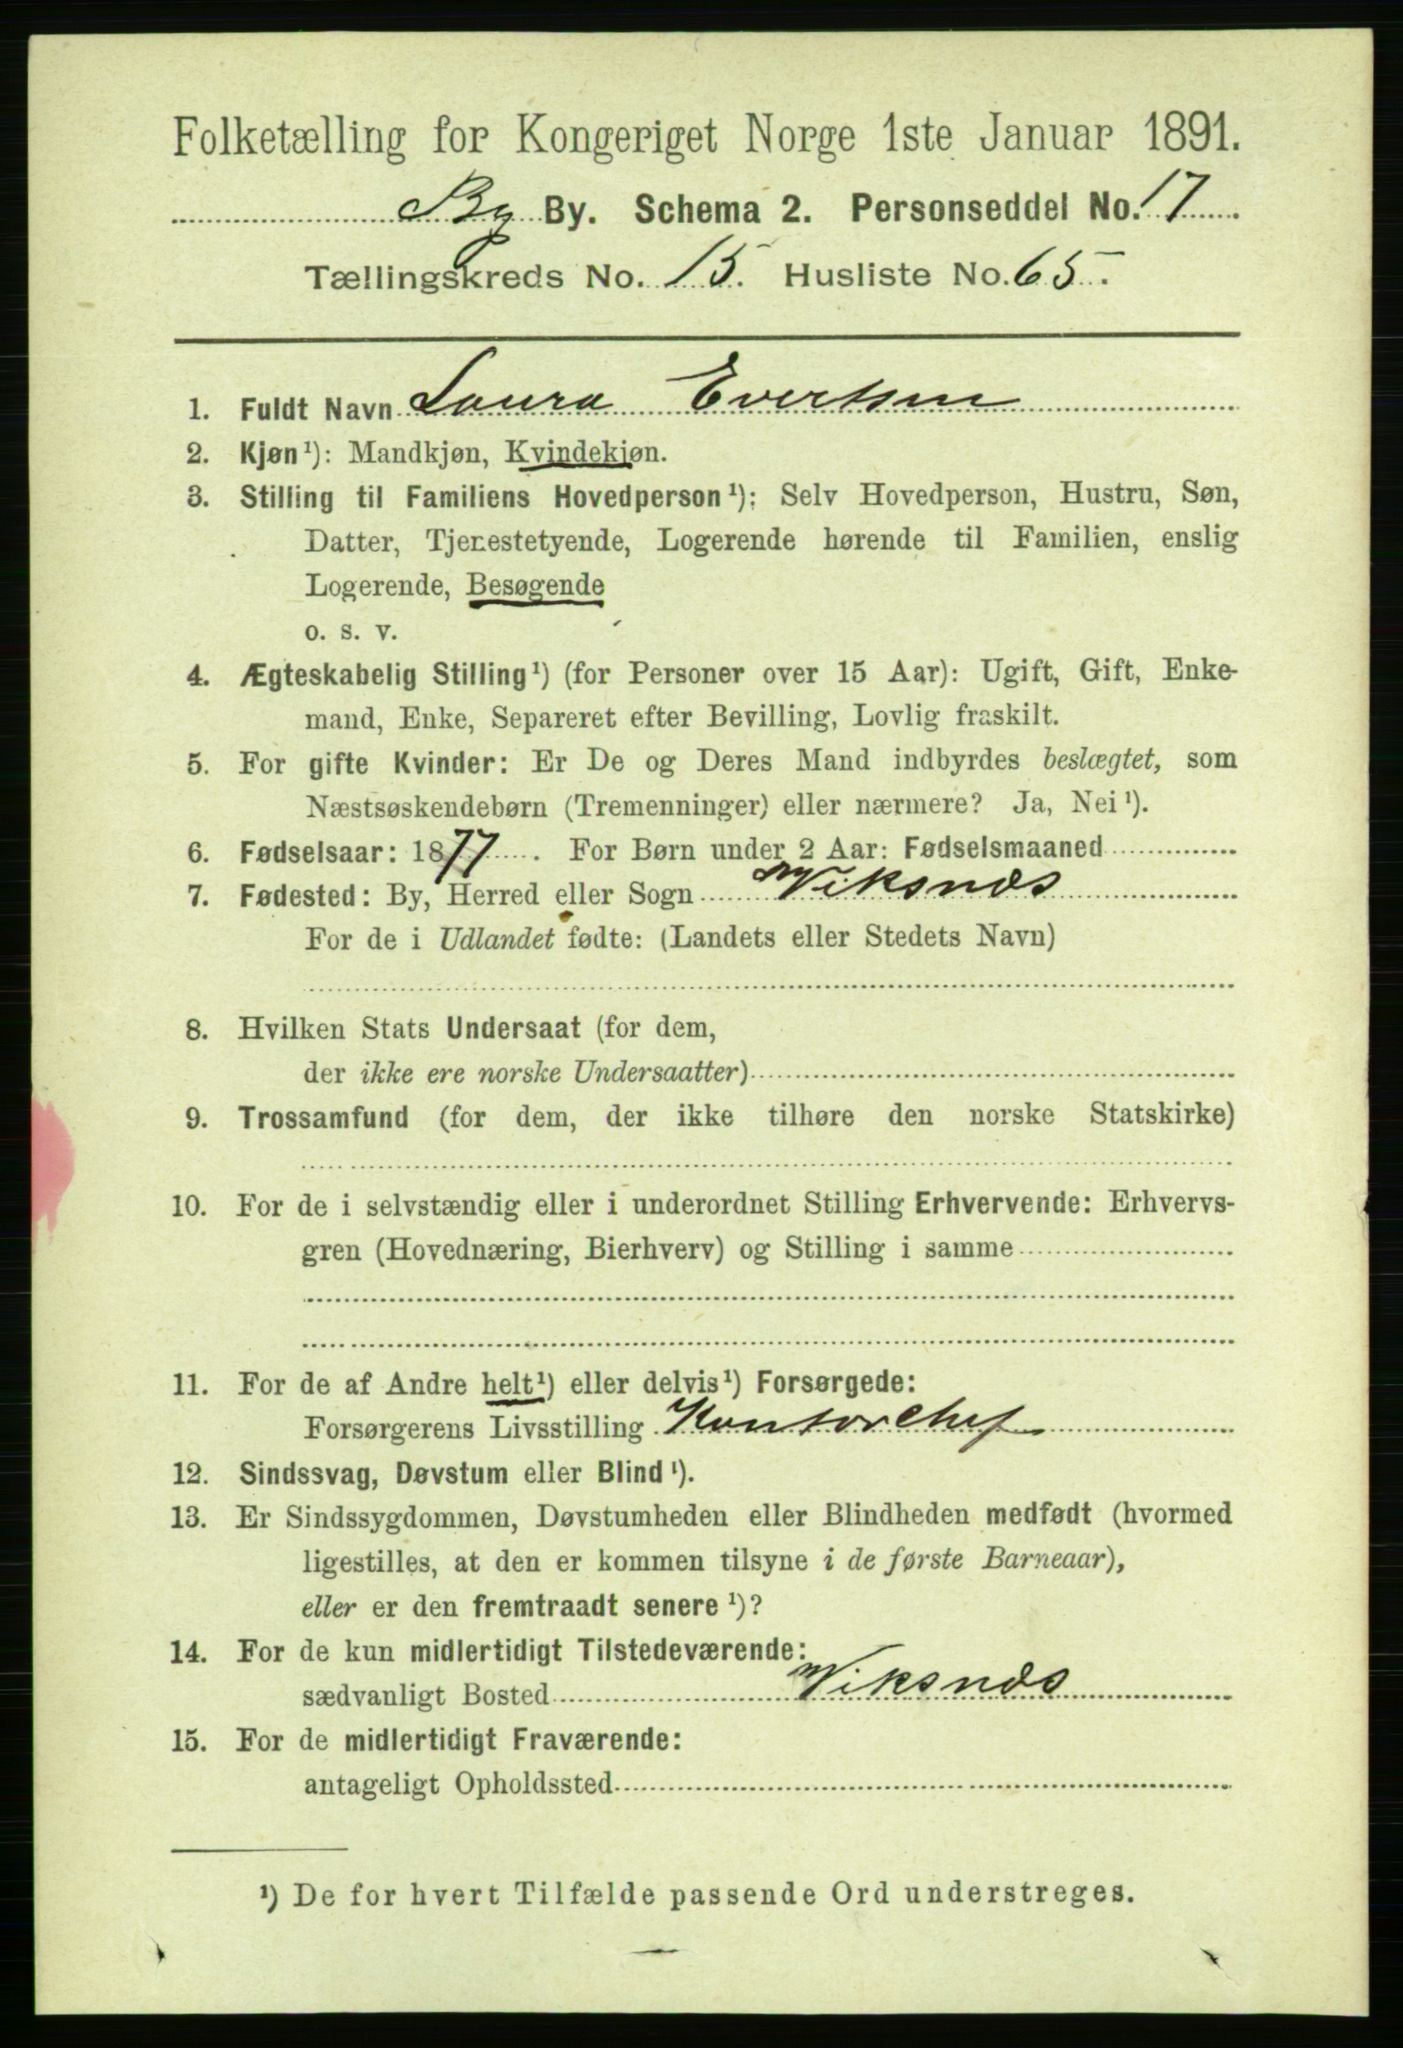 Folketælling for Kongeriget Norge 1ste Januar 1891.
By By. Schema 2. Personseddel No. 17
Tællingskreds No. 15. Husliste No. 65.
1. Fuldt Navn Laura Evertsen
2. Kjøn¹): Mandkjøn, Kvindekjøn.
3. Stilling til Familiens Hovedperson¹): Selv Hovedperson, Hustru, Søn,
Datter, Tjenestetyende, Logerende hørende til Familien, enslig
Logerende, Besøgende
o. s. v.
4. Ægteskabelig Stilling¹) (for Personer over 15 Aar): Ugift, Gift, Enke-
mand, Enke, Separeret efter Bevilling, Lovlig fraskilt.
5. For gifte Kvinder: Er De og Deres Mand indbyrdes beslægtet, som
Næstsøskendebørn (Tremenninger) eller nærmere? Ja, Nei¹).
6. Fødselsaar: 1877. For Børn under 2 Aar: Fødselsmaaned
7. Fødested: By, Herred eller Sogn Wiksnæs
For de i Udlandet fødte: (Landets eller Stedets Navn)
8. Hvilken Stats Undersaat (for dem,
der ikke ere norske Undersaatter)
9. Trossamfund (for dem, der ikke tilhøre den norske Statskirke)
10. For de i selvstændig eller i underordnet Stilling Erhvervende: Erhvervs-
gren (Hovednæring, Bierhverv) og Stilling i samme
11. For de af Andre helt¹) eller delvis¹) Forsørgede:
Forsørgerens Livsstilling Kontorchef
12. Sindssvag, Døvstum eller Blind¹).
13. Er Sindssygdommen, Døvstumheden eller Blindheden medfødt (hvormed
ligestilles, at den er kommen tilsyne i de første Barneaar),
eller er den fremtraadt senere¹)?
14. For de kun midlertidigt Tilstedeværende:
sædvanligt Bosted Wiksnæs
15. For de midlertidigt Fraværende:
antageligt Opholdssted
¹) De for hvert Tilfælde passende Ord understreges.